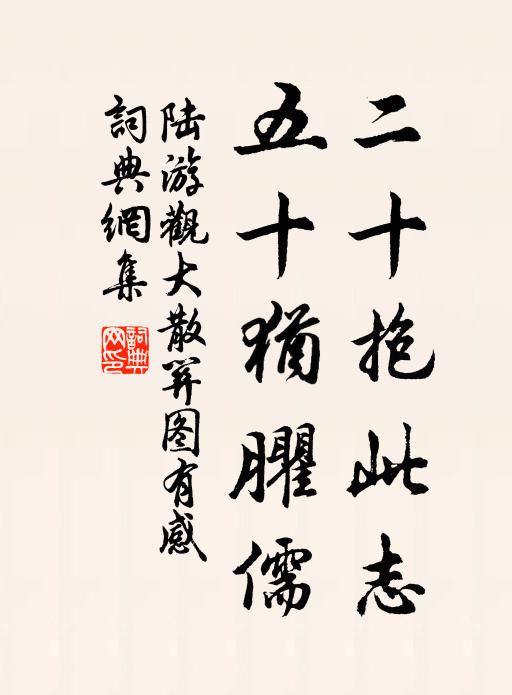 二十抱此志
五十猶臞儒
陆游觀大散関图有感
詞典網集
詞典網印